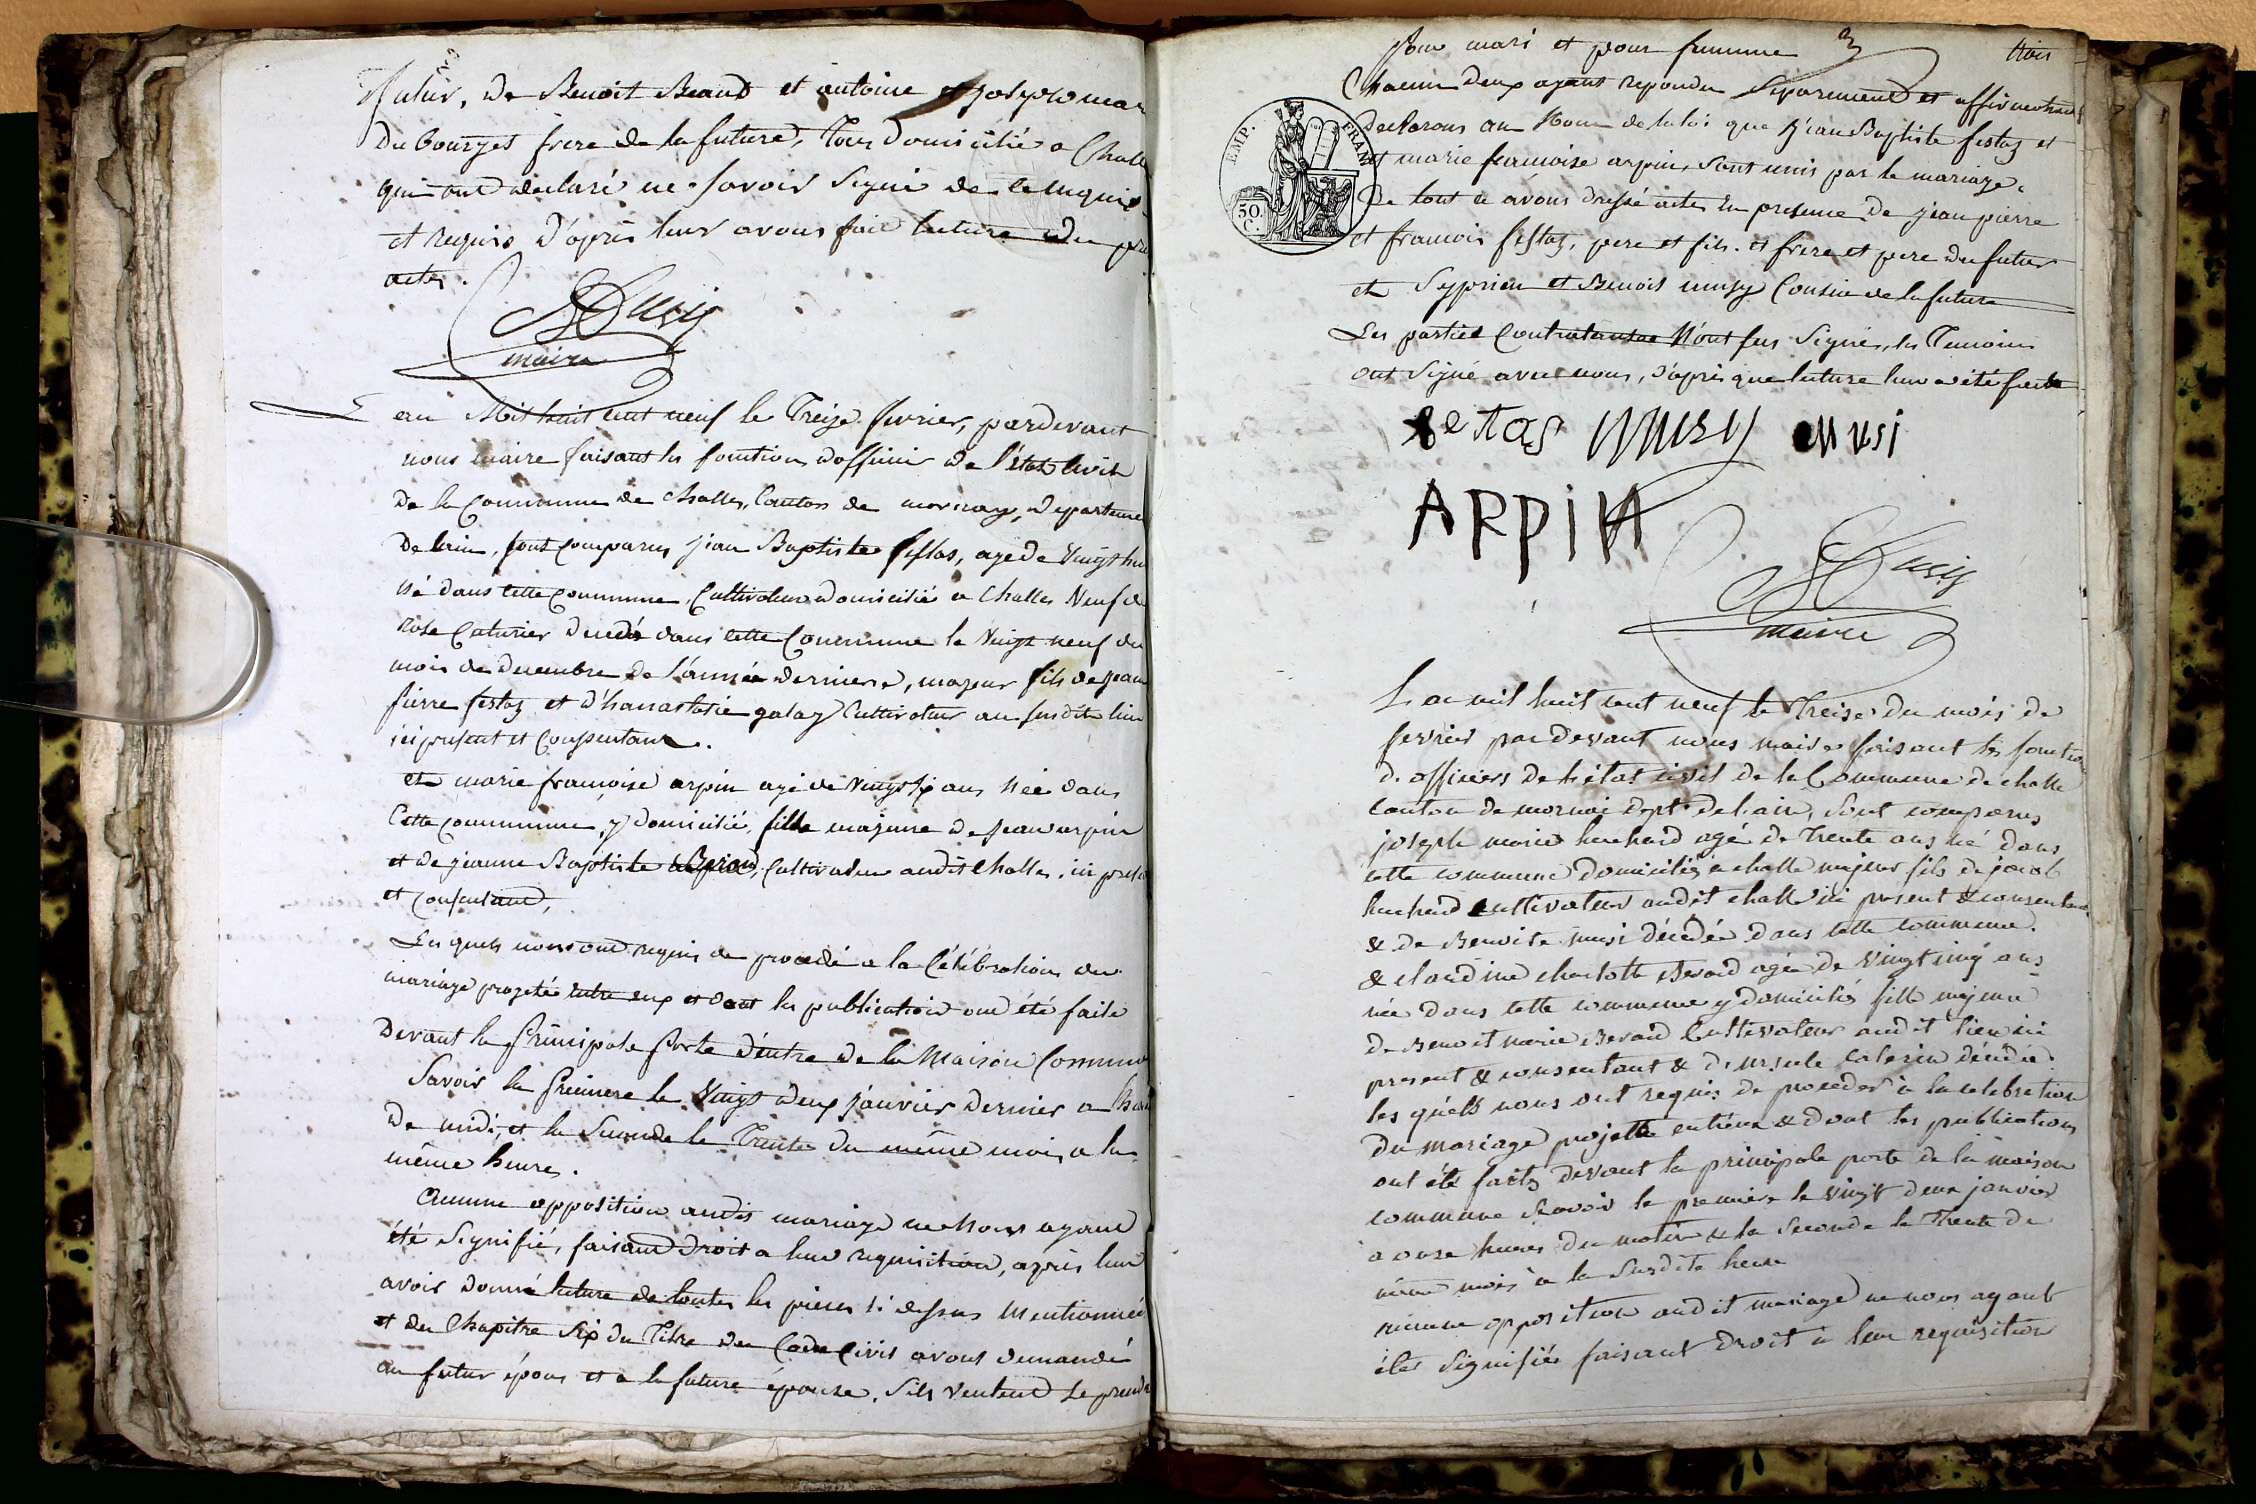 futur, de Benoit Beraud et antoine et joseph mar
du Bourges frere de la future, tous domicilié a Challe
qui ont declaré ne savoir signé de ce enquis
et requis d'apres leur avons fait lecture du pre
actes.
maire
L'an Mil huit cent neuf le Treize fevrier, pardevant
nous maire faisant les fonction d'officier de l'état Civil
de la Commune de Challes, Canton de mornay, departeme
de l'ain, sont comparus jean Baptiste festas, age de Vingt hu
né dans cette Commune, Cultivateur domicilié a Challes Veuf de
rose Caturier decedé dans cette Commune le Vingt neuf du
mois de decembre de l'année derniere, majeur fils de jean
pierre festaz et d'hanastasie galay Cultivateur au susdit lieu
ici present et Consentant.
et marie francoise arpin agé de Vingt six ans née dans
Cette Commune, y domicilié, fille majeure de jean arpin
et de jeanne Baptiste Beraud, Cultivateur audit Challes, ici prese
et consentant,
Les quels nous ont requis de procedé a la Célébration du
mariage projeté entre eux et dont les publication ont été faite
Devant la Principale Porte d'entre de la Maison Commune
Savoir la Premiere le Vingt deux janvier dernier a
de midi, et la Seconde le Trante du même mois, a la
même heure.
Aucune opposition audit mariage ne nous ayant
été Signifié, faisant droit a leur requisition, apres leur
avoir donné lecture de toutes les pieces ci dessus Mentionnée
et du Chapitre Six du Titre du Code Civil avons demandé
au futur époux et a la future épouse, s'ils veulent se prendr
pour mari et pour femme 3 trois
Chacun deux ayant repondu Separement et affirmativemt
Declarons au Nom de la loi que jean Baptiste festaz et
et marie francoise arpin, Sont unis par le mariage.
De tout ce avons dressé actes En presence de jean pierre
et francois festaz, pere et fils. et frere et pere du futur
et Syprien et Benois musy Cousin de la future
Les parties Contratantes N'ont pas Signés, les Temoins
ont Signé avec nous, d'après que lecture leur a été faite
EMP. FRAN
50. C.
musy musi
ARPIN
maire
L'an mil huit cent neuf le Treise du mois de
fevrier par devant nous maire faisant les fonction
d. officiers de l'état civil de la Commune de challe
canton de mornai dept. de l'ain, sont comparus
joseph marie huchard agé de Trente ans né dans
cette commune domicilié a challe majeur fils de jacob
huchard cultivateur audit challe ici present & consentant
& de Benoite musi décédée dans cette commune.
& claudine charlotte Beraud agée de Vingt cinq ans
née dans cette commune y domiciliée fille majeure
de Benoit marie Beraud Cultivateur audit lieu ici
present & consentant & d'ursule caterin décédée.
les quels nous ont requis de proceder à la celebration
du mariage projetté entr'eux & dont les publications
ont été faites devant la principale porte de la maison
commune Savoir la premiere le Vingt deux janvier
a onze heures du matin & la Seconde le Trente du
même mois a la Susdite heure
aucune opposition audit mariage ne nous ayant
été Signifiée faisant droit à leur requisition